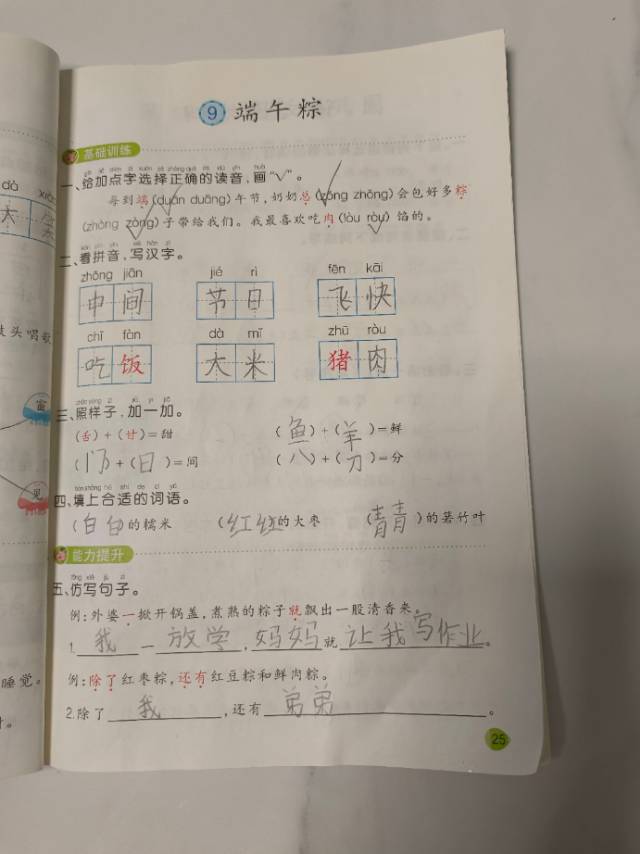 9 端午粽
基础训练
一、给加点字选择正确的读音,画“√”。
每到端(duān duāng)午节,奶奶总(zǒng zhǒng)会包好多粽
(zhòng zòng)子带给我们。我最喜欢吃肉(lòu ròu)馅的。
二、看拼音,写汉字。
zhōng jiān jié rì fēn kāi
中间 节日 飞快
chī fàn dà mǐ zhū ròu
吃饭 大米 猪肉
三、照样子,加一加。
(舌)+(甘)=甜 (鱼)+(羊)=鲜
(门)+(日)=间 (八)+(刀)=分
四、填上合适的词语。
(白白)的糯米 (红红)的大枣 (青青)的箬竹叶
能力提升
五、仿写句子。
例:外婆一掀开锅盖,煮熟的粽子就飘出一股清香来。
1.我一放学,妈妈就让我写作业。
例:除了红枣粽,还有红豆粽和鲜肉粽。
2.除了我,还有弟弟。
25
dà
大
头唱歌
富
见
睡觉。